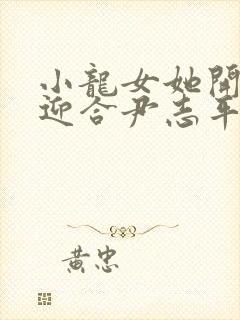 小龍女她開
迎合尹志平
黃忠